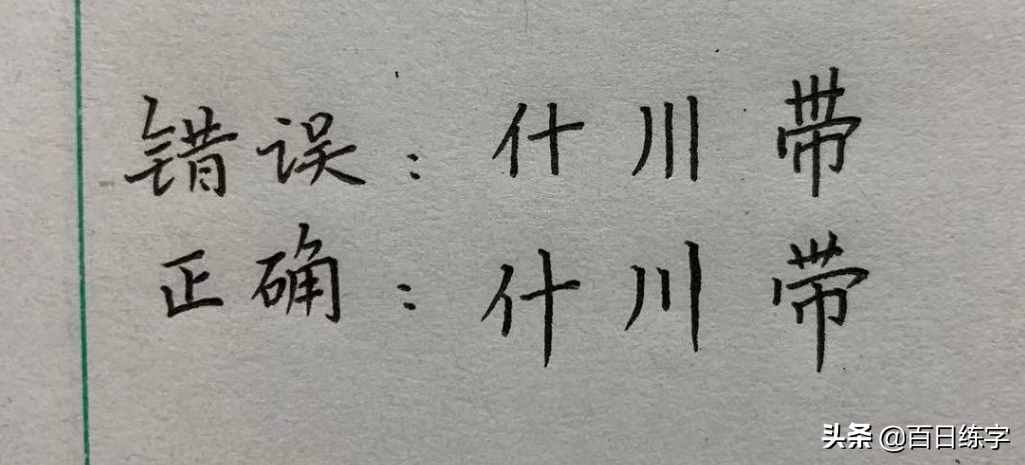 错误：什川带
正确：什川带
头条 @百日练字